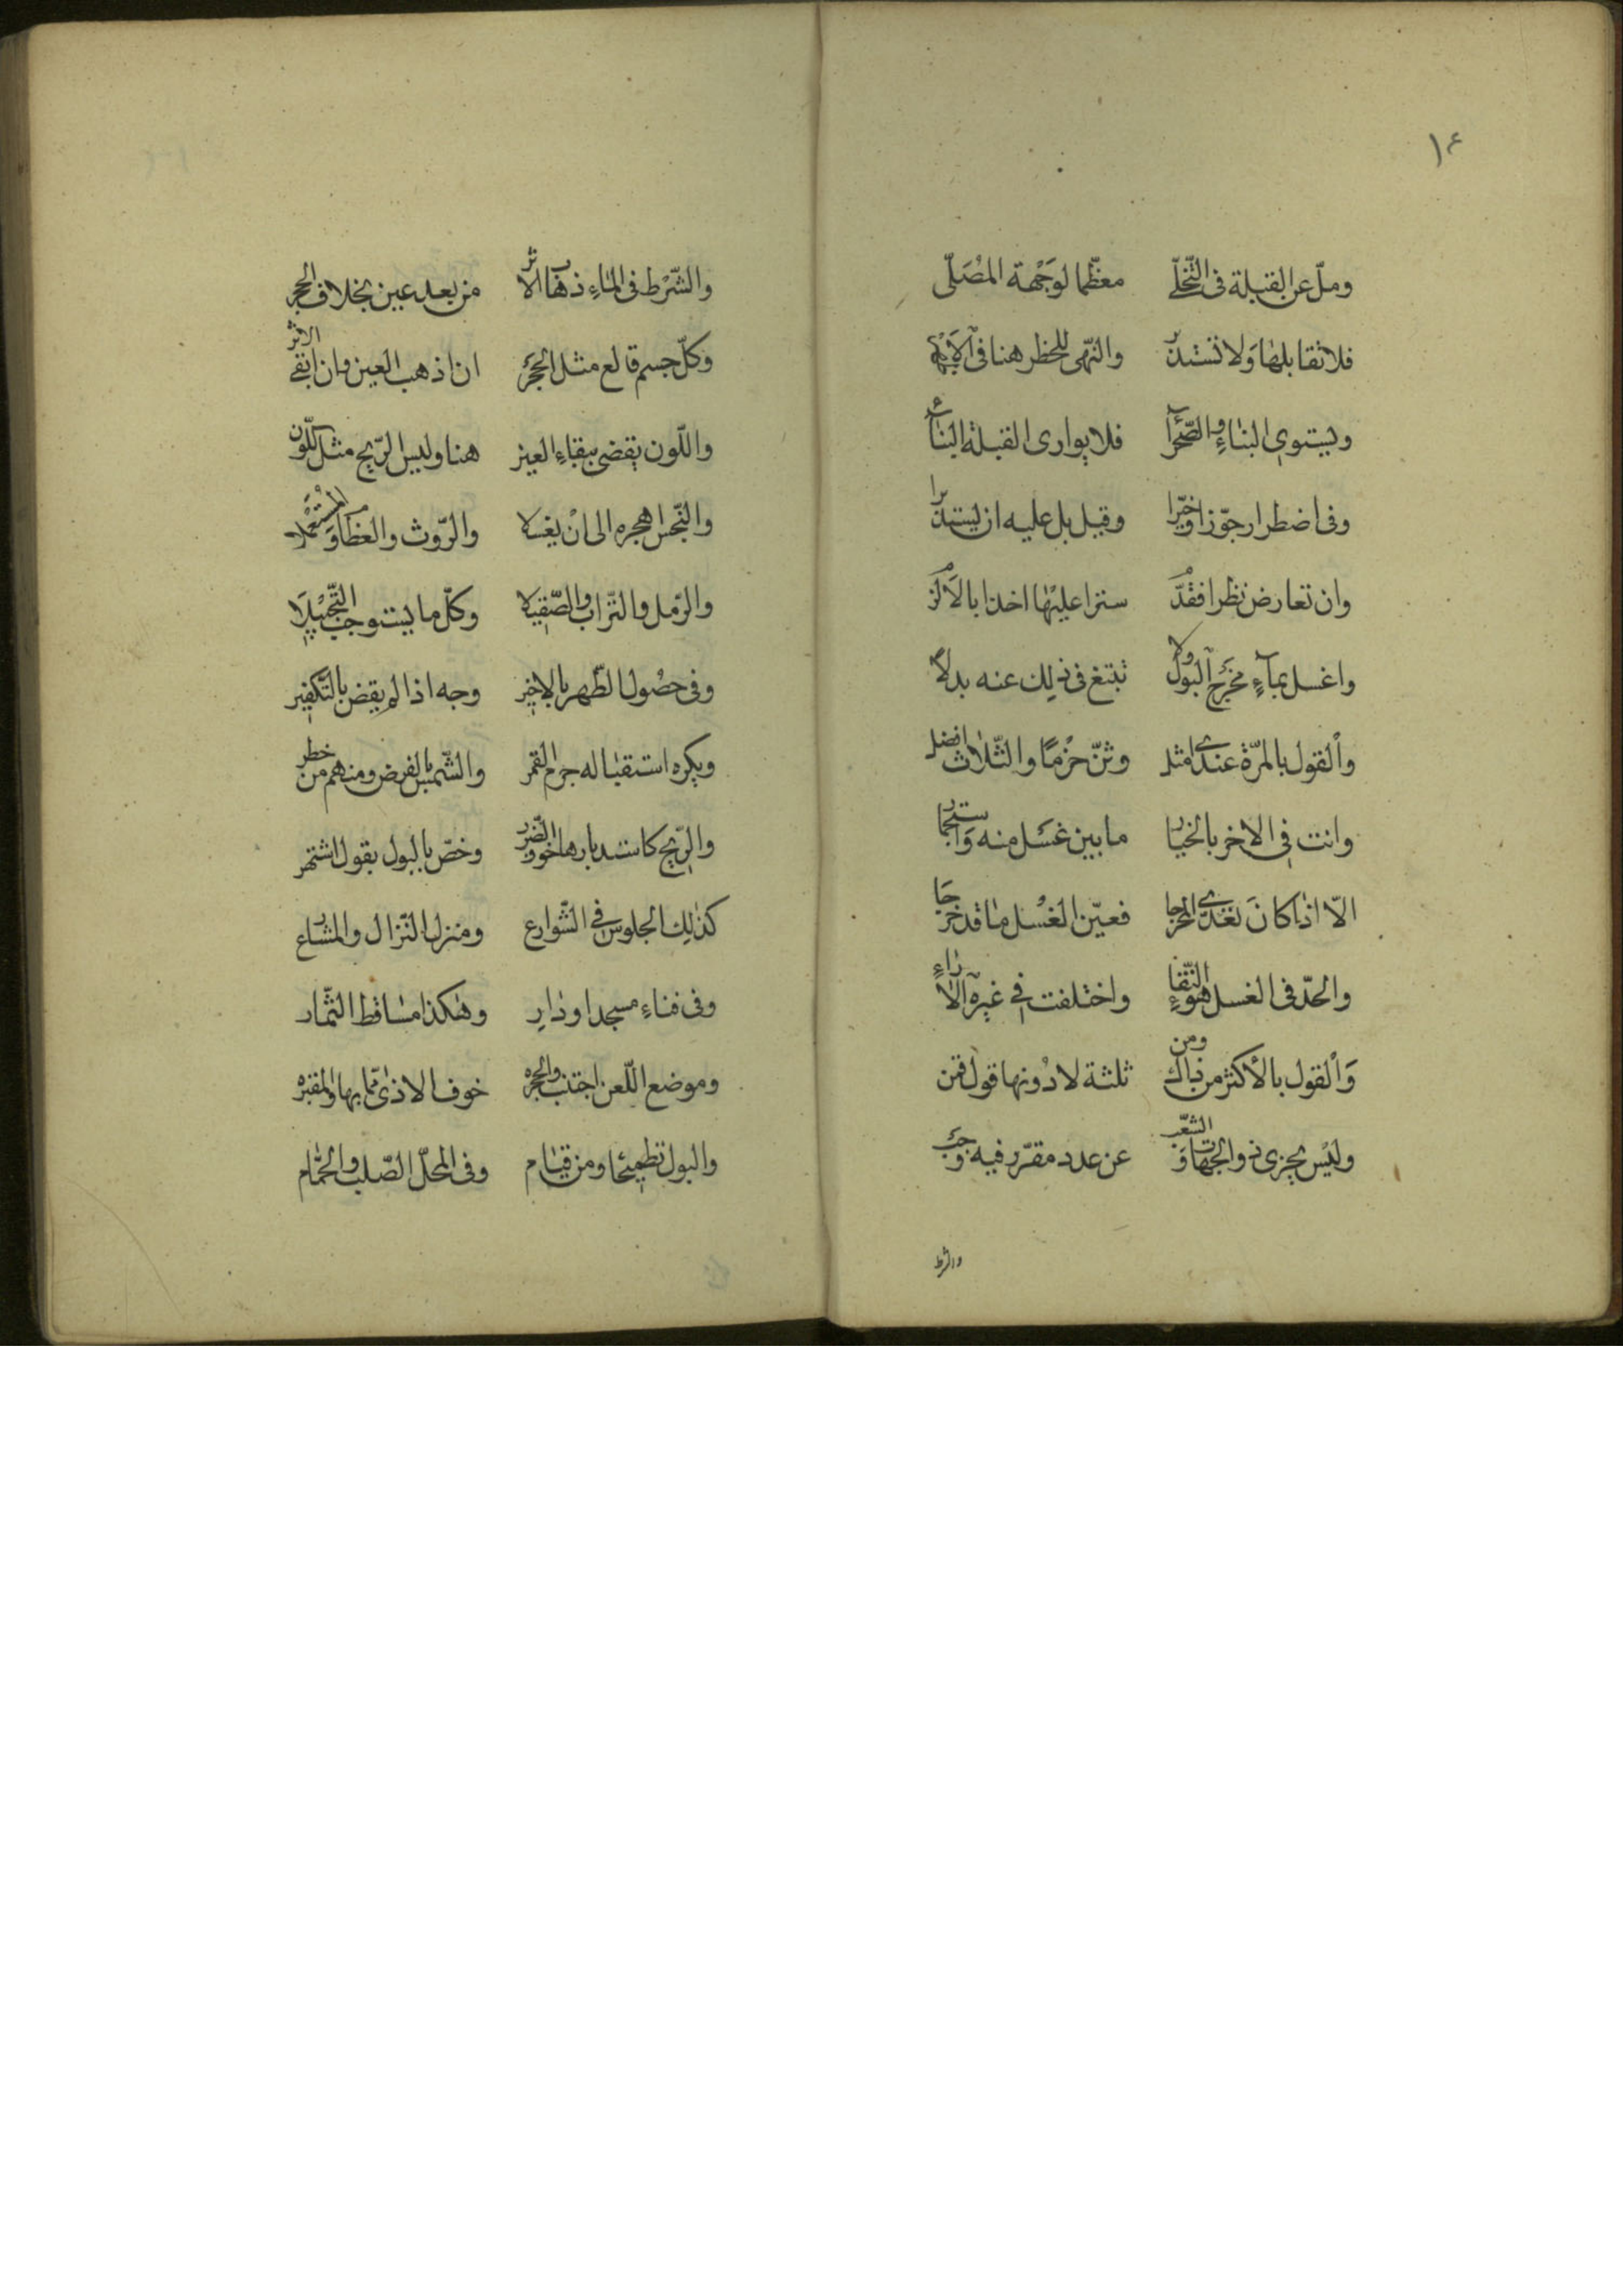 ١٤
ومل عن القبلة في التخلي معظما لوجهة المصلى
فلا تقابلها ولا تستدبر والنهى للحظر هنا في الاشهر
ويستوي البناء والصحراء فلا يوارى القبلة البناء
وفى اضطرار جوزا وخيرا وقيل بل عليه ان يستدبرا
وان تعارض نظرا فقدم سترا عليها اخذا بالالزم
واغسل بماء مخرج البول ولا تبتغ في ذلك عنه بدلا
والقول بالمرة عندى امثل وثن حزما والثلاث افضل
وانت في الاخر بالخيار ما بين غسل منه واستجمار
الا اذا كان تعدى المخرجا فعين الغسل ما قد خرجا
والحد فى الغسل هو النقاء واختلفت في غيره الاراء
والقول بالأكثر من ذاك ومن ثلثة لا دونها قول قمن
وليس يجزى ذو الجهات والشعب عن عدد مقرر فيه وجب
والشرط
والشرط فى الماء ذهاب الاثر من بعد عين بخلاف الحجر
وكل جسم قالع مثل الحجر ان اذهب العين وان ابقى الاثر
واللون يقضى ببقاء العين هنا وليس الريح مثل اللون
والنجس اهجره الى ان يغسلا والروث والعظم وما استعملا
والرمل والتراب والصقيلا وكل ما يستوجب التبجيلا
وفى حصول الطهر بالاخير وجه اذا لم يقض بالتكفير
ويكره استقباله جرم القمر والشمس بالفرض ومنهم من حظر
والريح كاستدبارها خوف الضرر وخص بالبول بقول اشتهر
كذلك الجلوس في الشوارع ومنزل النزال والمشارع
وفى فناء مسجد او دار وهكذا مساقط الثمار
وموضع اللعن اجتنب والجحره خوف الاذى مما بها والمقبره
والبول تطميحا ومن قيام وفى المحل الصلب والحمام